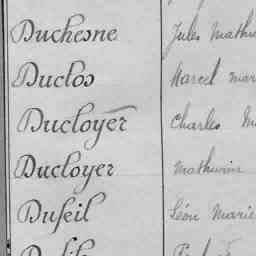 Duchesne Jules
Duclos Marcel
Ducloyer Charles
Ducloyer Mathurin
Dufeil Léon Marie